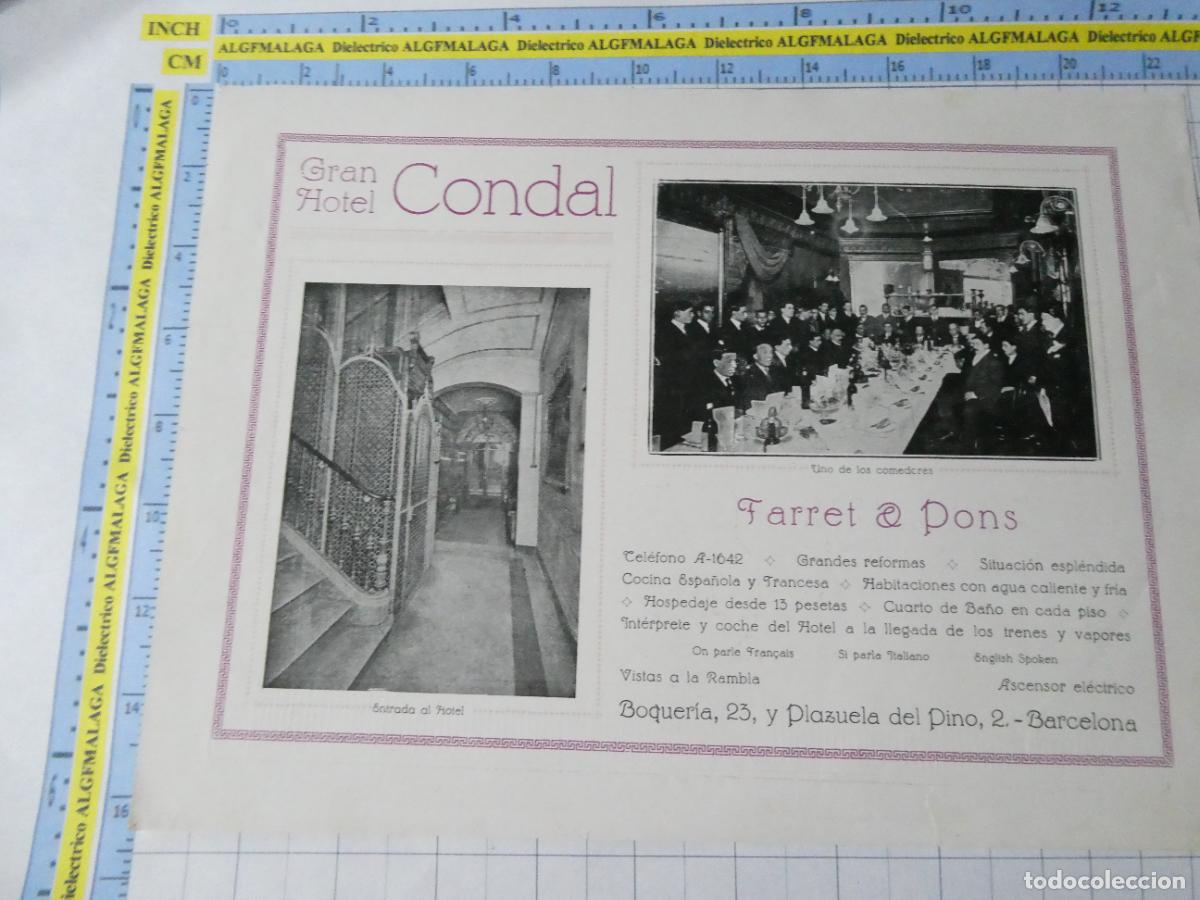 INCH
0 2 4 6 8 10 12
ALGFMALAGA Dielectrico ALGFMALAGA Dielectrico ALGFMALAGA Dielectrico ALGFMALAGA Dielectrico ALGFMALAGA Dielectrico ALGF
CM
0 2 4 6 8 10 12 14 16 18 20 22
Dielectrico ALGFMALAGA Dielectrico ALGFMALAGA Dielectrico ALGFMALAGA Dielectrico ALGFMALAGA
0
2
4
6
8
10
12
14
16
Gran
Hotel
Condal
Entrada al Hotel
Uno de los comedores
Farret & Pons
Teléfono A-1642 ✧ Grandes reformas ✧ Situación espléndida
Cocina Española y Francesa ✧ Habitaciones con agua caliente y fría
✧ Hospedaje desde 13 pesetas ✧ Cuarto de Baño en cada piso ✧
Intérprete y coche del Hotel a la llegada de los trenes y vapores
On parle Français Si parla Italiano English Spoken
Vistas a la Rambla Ascensor eléctrico
Boquería, 23, y Plazuela del Pino, 2.-Barcelona
todocoleccion